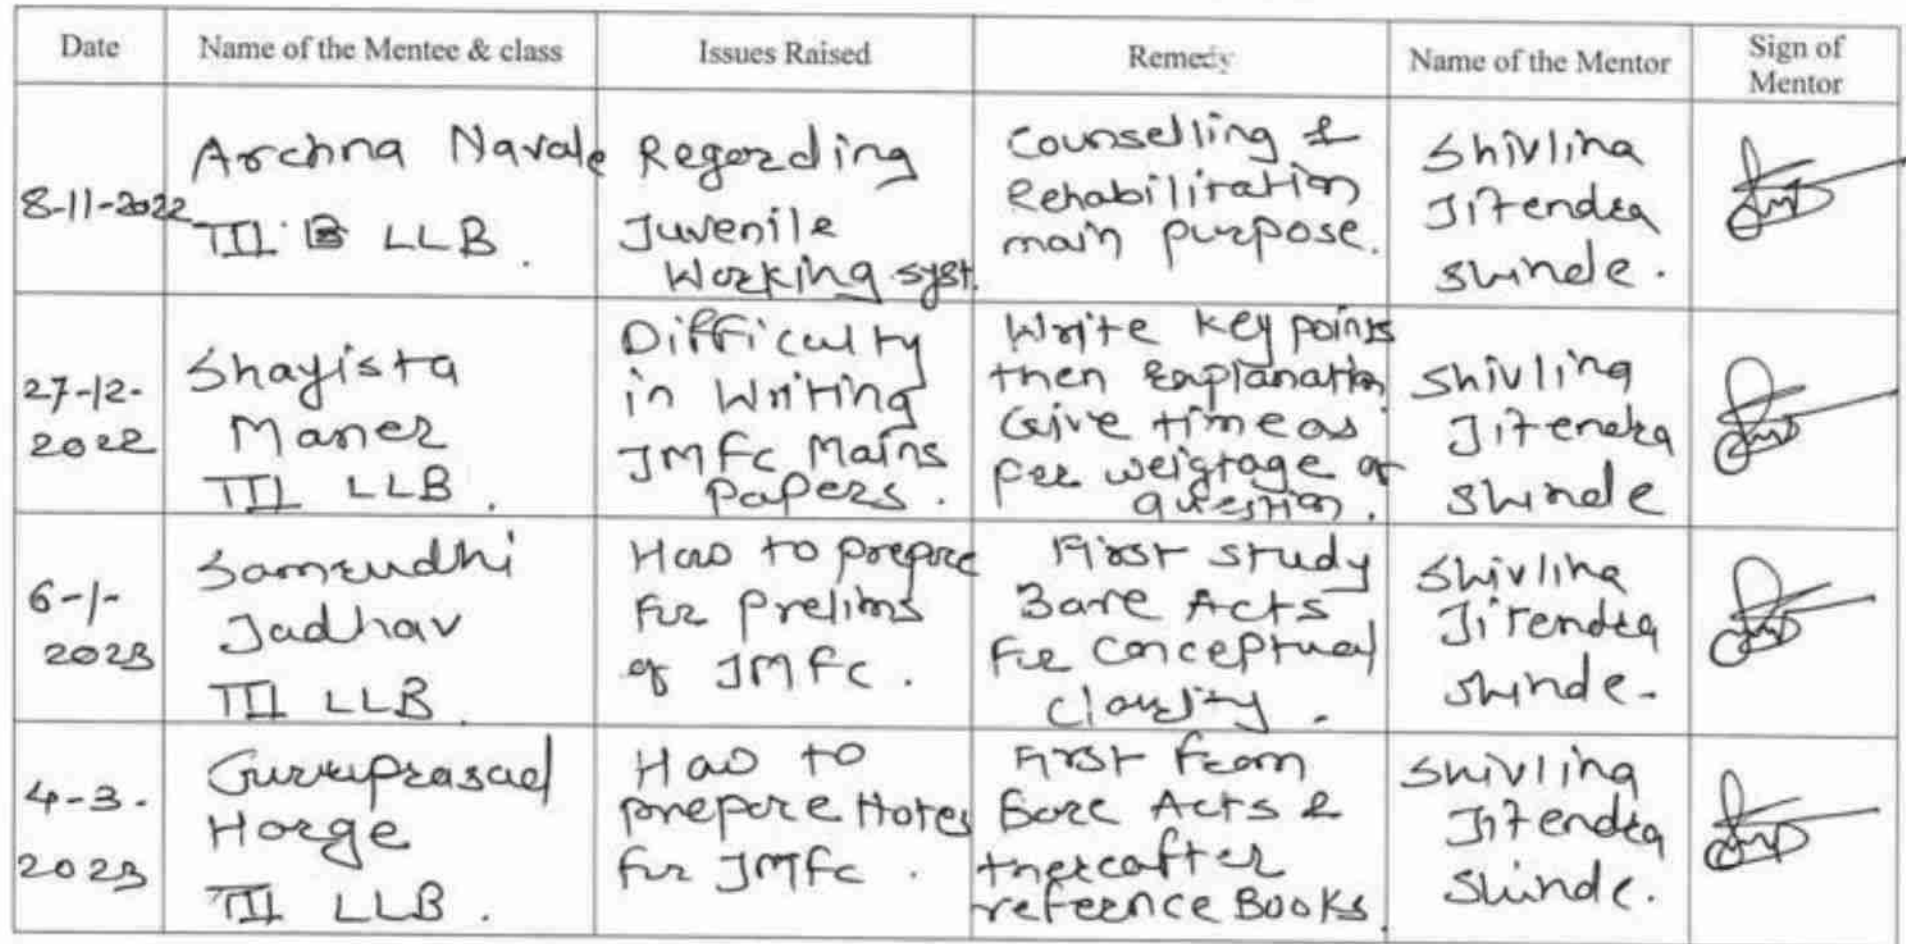 Date Name of the Mentee & class Issues Raised Remedy Name of the Mentor Sign of Mentor
8-11-2022
Archna Navale
III B LLB.
Regarding
Juvenile
Working syst.
Counselling &
Rehabilitation
main purpose.
Shivling
Jitendra
Shinde.
27-12-
2022
Shayista
Maner
III LLB.
Difficulty
in Writing
JMFC Mains
Papers.
Write key points
then Explanation
Give time as
per weigtage of
question.
Shivling
Jitendra
Shinde
6-1-
2023
Samrudhi
Jadhav
III LLB.
How to prepare
for Prelims
of JMFC.
First study
Bare Acts
for conceptual
clarity.
Shivling
Jitendra
Shinde.
4-3-
2023
Guruprasad
Horge
III LLB.
How to
prepare Notes
for JMFC.
First from
Bare Acts &
thereafter
reference Books.
Shivling
Jitendra
Shinde.